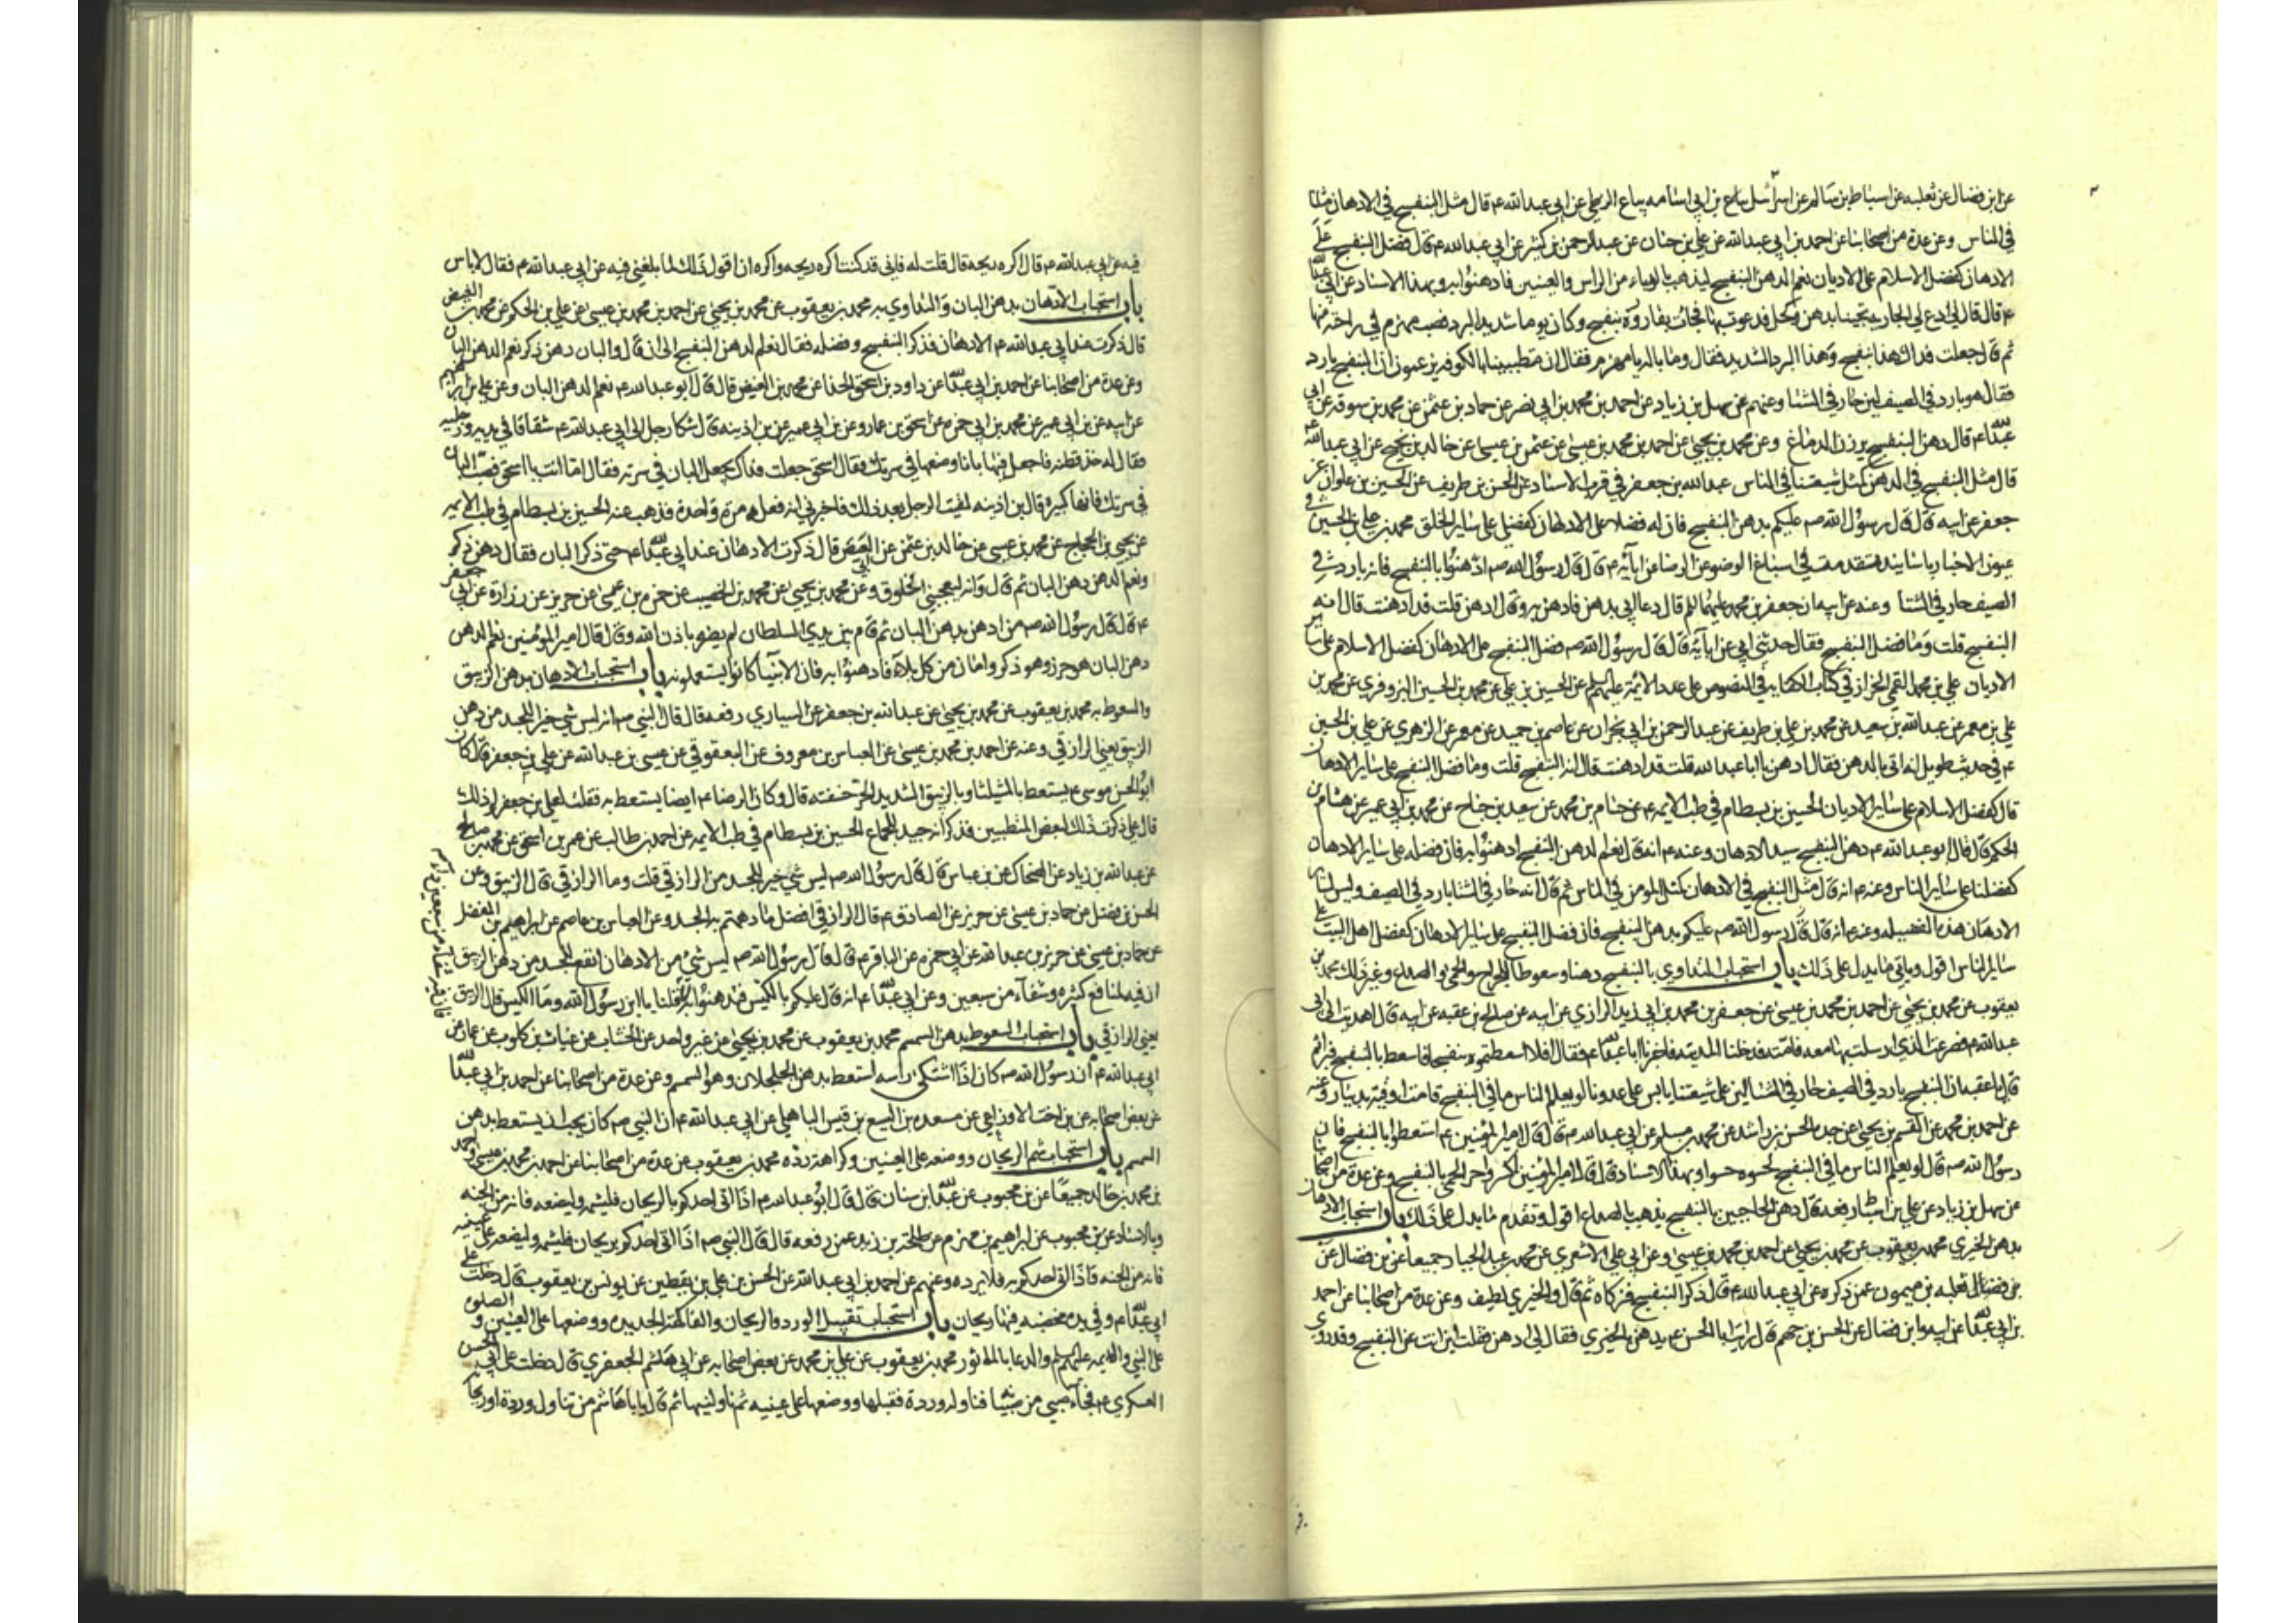 عن ابن فضال عن ثعلبه عن اسباط بن سالم عن اسرائيل بياع بن ابي اسامه بياع الزطي عن ابي عبدالله ع قال مثل البنفسج في الادهان مثلنا
في الناس وعن عدة من اصحابنا عن احمد بن ابي عبدالله عن علي بن حنان عن عبدالرحمن بن كثير عن ابي عبدالله ع قال فضل البنفسج على
الادهان كفضل الاسلام على الاديان نعم الدهن البنفسج ليذهب بالداء من الراس والعينين فادهنوا به وبهذا الاسناد عن ابي عبدالله
ع قال قال لي ادع لي الجاريه تجيئنا بدهن وكحل فدعوت بها فجائت بقاروره بنفسج وكان يوما شديد البرد فصب مهزم في راحته منها
ثم قال جعلت فداك هذا بنفسج وهذا البرد الشديد فقال وما باله يا مهزم فقال ان متطببينا بالكوفه يزعمون ان البنفسج بارد
فقال هو بارد في الصيف لين حار في الشتا وعنهم عن سهل بن زياد عن احمد بن محمد بن ابي نصر عن حماد بن عثمن عن محمد بن سوقه عن ابي
عبدالله ع قال دهن البنفسج يرزن الدماغ وعن محمد بن يحيى عن احمد بن محمد بن عيسى عن عثمن بن عيسى عن خالد بن نجيح عن ابي عبدالله ع
قال مثل البنفسج في الدهن كمثل شيعتنا في الناس عبدالله بن جعفر في قرب الاسناد عن الحسن بن طريف عن الحسين بن علوان عن
جعفر عن ابيه قال قال رسول الله صم عليكم بدهن البنفسج فان له فضلا على الادهان كفضلي على ساير الخلق محمد بن علي بن الحسين في
عيون الاخبار باسانيد تقدمت في اسباغ الوضو عن الرضا عن ابآئه ع قال قال رسول الله صم ادهنوا بالبنفسج فانه بارد في
الصيف حار في الشتا وعنه عن ابيه ان جعفر بن محمد عليهما السلم قال دعا ابي بدهن فادهن به وقال ادهن قلت قد ادهنت قال انه
البنفسج قلت وما فضل البنفسج فقال حدثني ابي عن ابآيه قال قال رسول الله صم فضل البنفسج على الادهان كفضل الاسلام على ساير
الاديان علي بن محمد القمي الخزاز في كتاب الكفايه في النصوص على عدد الائمة عليهم السلم عن الحسين بن علي عن محمد بن الحسين البزوفري عن محمد بن
علي بن معمر عن عبدالله بن سعيد عن محمد بن علي بن طريف عن عبدالرحمن بن ابي نجران عن عاصم بن حميد عن معمر عن الزهري عن علي بن الحسين
ع في حديث طويل انه اتي بالدهن فقال ادهن يا ابا عبدالله قلت قد ادهنت قال انه البنفسج قلت وما فضل البنفسج على ساير الادهان
قال كفضل الاسلام على ساير الاديان الحسين بن بسطام في طب الايمه ع عن ختام بن محمد عن سعيد بن جناح عن محمد بن ابي عمير عن هشام بن
الحكم قال قال ابو عبدالله ع دهن البنفسج سيد الادهان وعنه ع انه قال نعم الدهن البنفسج ادهنوا به فان فضله على ساير الادهان
كفضلنا على ساير الناس وعنه ع انه قال مثل البنفسج في الادهان كمثل المومن في الناس ثم قال انه حار في الشتا بارد في الصيف وليس لساير
الادهان هذه الفضيله وعنه ع انه قال قال رسول الله صم عليكم بدهن البنفسج فان فضل البنفسج على ساير الادهان كفضل اهل البيت على
ساير الناس اقول وياتي ما يدل على ذلك باب استحباب التداوي بالبنفسج دهنا وسعوطا للجراح والحمى والصداع وغير ذلك محمد بن
يعقوب عن محمد بن يحيى عن احمد بن محمد بن عيسى عن جعفر بن محمد بن ابي زيد الرازي عن ابيه عن صالح بن عقبه عن ابيه قال اهديت الى ابي
عبدالله ع فصرعت الذي ارسلت بها معه فامته فدخلنا المدينه فاخبرنا ابا عبدالله ع فقال افلا اسعطتموه بنفسجا فاسعط بالبنفسج فبرا ثم
قال يا عقبه ان البنفسج بارد في الصيف حار في الشتا لين على شيعتنا يابس على عدونا لو يعلم الناس ما في البنفسج قامت اوقيته بدينار وعنه
عن احمد بن محمد عن القسم بن يحيى عن جده الحسن بن راشد عن محمد بن مسلم عن ابي عبدالله ع قال قال امير المؤمنين ع استعطوا بالبنفسج فان
رسول الله صم قال لو يعلم الناس ما في البنفسج لحسوه حسوا وبهذا الاسناد قال قال امير المؤمنين اكسروا حر الحمى بالبنفسج وعن عدة من اصحابنا
عن سهل بن زياد عن علي بن اسباط رفعه قال دهن الحاجبين بالبنفسج يذهب بالصداع اقول وتقدم ما يدل على ذلك باب استحباب الادهان
بدهن الخيري محمد بن يعقوب عن محمد بن يحيى عن احمد بن محمد بن عيسى وعن ابي علي الاشعري عن محمد بن عبد الجبار جميعا عن بن فضال عن
بن فضال ثعلبه بن ميمون عمن ذكره عن ابي عبدالله ع قال ذكر البنفسج فزكاه ثم قال والخيري لطيف وعن عدة من اصحابنا عن احمد
بن ابي عبدالله عن ابيه وابن فضال عن الحسن بن جهم قال رايت ابا الحسن ع يدهن بالخيري فقال لي ادهن فقلت اين انت عن البنفسج وقد روي
فيه عن ابي عبدالله ع قال اكره ريحه قال قلت له فاني قد كنت اكره ريحه واكره ان اقول ذلك لما بلغني فيه عن ابي عبدالله ع فقال لا باس
باب استحباب الادهان بدهن البان والتداوي به محمد بن يعقوب عن محمد بن يحيى عن احمد بن محمد بن عيسى عن علي بن الحكم عن محمد بن الفيض
قال ذكرت عند ابي عبدالله ع الادهان فذكر البنفسج وفضله فقال نعم الدهن البنفسج الى ان قال والبان دهن ذكر نعم الدهن البان
وعن عدة من اصحابنا عن احمد بن ابي عبدالله عن داود بن اسحق الحذا عن محمد بن الفيض قال قال ابو عبدالله ع نعم الدهن البان وعن علي بن ابراهيم
عن ابيه عن بن ابي عمير عن محمد بن ابي حمزه عن اسحق بن عمار وعن بن ابي عمير عن بن اذينه قال شكا رجل الى ابي عبدالله ع شقاقا في يديه ورجليه
فقال له خذ قطنه فاجعل فيها بانا وضعها في سرتك فقال اسحق جعلت فداك يجعل البان في سرته فقال اما انت يا اسحق فصب البان
في سرتك فانها كبيرة قال بن اذينه لقيت الرجل بعد ذلك فاخبرني انه فعله مرة واحدة فذهب عنه الحسين بن بسطام في طب الايمه
عن يحيى بن الحجاج عن محمد بن عيسى عن خالد بن عثمن عن ابي العيص قال ذكرت الادهان عند ابي عبدالله ع حتى ذكر البان فقال دهن ذكر
ونعم الدهن دهن البان ثم قال وانه ليعجبني الخلوق وعن محمد بن يحيى عن محمد بن الخصيب عن حمزه بن عيسى عن حريز عن زرارة عن ابي جعفر
ع قال قال رسول الله صم من ادهن بدهن البان ثم قام بين يدي السلطان لم يضره باذن الله وقال قال امير المؤمنين نعم الدهن
دهن البان هو حرز وهو ذكر وامان من كل بلاء فادهنوا به فان الانبيا كانوا يستعملونه باب استحباب الادهان بدهن الزنبق
والسعوط به محمد بن يعقوب عن محمد بن يحيى عن عبدالله بن جعفر عن السياري رفعه قال قال النبي صم انه ليس شي خير للجسد من دهن
الزنبق يعني الرازقي وعنه عن احمد بن محمد بن عيسى عن العباس بن معروف عن اليعقوبي عن عيسى بن عبدالله عن علي بن جعفر قال كان
ابو الحسن موسى ع يستعط بالشيلثا وبالزنبق الشديد الحر خسفته قال وكان الرضا ع ايضا يستعط به فقلت لعلي بن جعفر لم ذلك
قال علي ذكرت ذلك لبعض المتطببين فذكر انه جيد للجماع الحسين بن بسطام في طب الايمه عن احمد بن طالب عن عمر بن اسحق عن محمد بن صالح
عن عبدالله بن زياد عن الضحاك عن بن عباس قال قال رسول الله صم ليس شي خير للجسد من الرازقي قلت وما الرازقي قال الزنبق وعن
الحسن بن فضل عن حماد بن عيسى عن حريز عن الصادق ع قال الرازقي افضل ما دهنتم به الجسد وعن العباس بن عاصم عن ابراهيم بن المفضل
عن حماد بن عيسى عن حريز بن عبدالله عن ابي حمزه عن الباقر ع قال قال رسول الله صم ليس شي من الادهان انفع للجسد من دهن الزنبق
ان فيه لمنافع كثيره وشفآء من سبعين وعن ابي عبدالله ع انه قال عليكم بالكيس فتدهنوا به قلنا يا ابن رسول الله وما الكيس قال الزنبق
يعني الرازقي باب استحباب السعوط بدهن السمسم محمد بن يعقوب عن محمد بن يحيى عن غير واحد عن الخشاب عن غياث بن كلوب عن عمار عن
ابي عبدالله ع ان رسول الله صم كان اذا اشتكى راسه استعط بدهن الجلجلان وهو السمسم وعن عدة من اصحابنا عن احمد بن ابي عبدالله
عن بعض اصحابه عن بن اخت الاوزاعي عن مسعده بن اليسع بن قيس الباهلي عن ابي عبدالله ع ان النبي صم كان يحب ان يستعط بدهن
السمسم باب استحباب شم الريحان ووضعه على العينين وكراهة رده محمد بن يعقوب عن عدة من اصحابنا عن احمد بن محمد بن عيسى واحمد
بن محمد بن خالد جميعا عن بن محبوب عن عبدالله بن سنان قال قال ابو عبدالله ع اذا اتي احدكم بالريحان فليشمه وليضعه فانه من الجنه
وبالاسناد عن بن محبوب عن ابراهيم بن مهزم عن طلحة بن زيد عمن رفعه قال قال النبي صم اذا اتي احدكم بريحان فليشمه وليضعه على عينيه
فانه من الجنه فاذا اتي احدكم به فلا يرده وعنهم عن احمد بن ابي عبدالله عن الحسن بن علي بن يقطين عن يونس بن يعقوب قال دخلت على
ابي عبدالله ع وفي يده مخضبه فيها ريحان باب استحباب تقبيل الورد والريحان والفاكهة الجديده ووضعها على العينين والصلوة
على النبي والايمه عليهم السلم والدعا بالماثور محمد بن يعقوب عن علي بن محمد عن بعض اصحابه عن ابي هاشم الجعفري قال دخلت على ابي الحسن
العسكري ع فجآء صبي من صبيانه فناوله وردة فقبلها ووضعها على عينيه ثم ناولنيها ثم قال يا ابا هاشم من تناول وردة او ريحانة